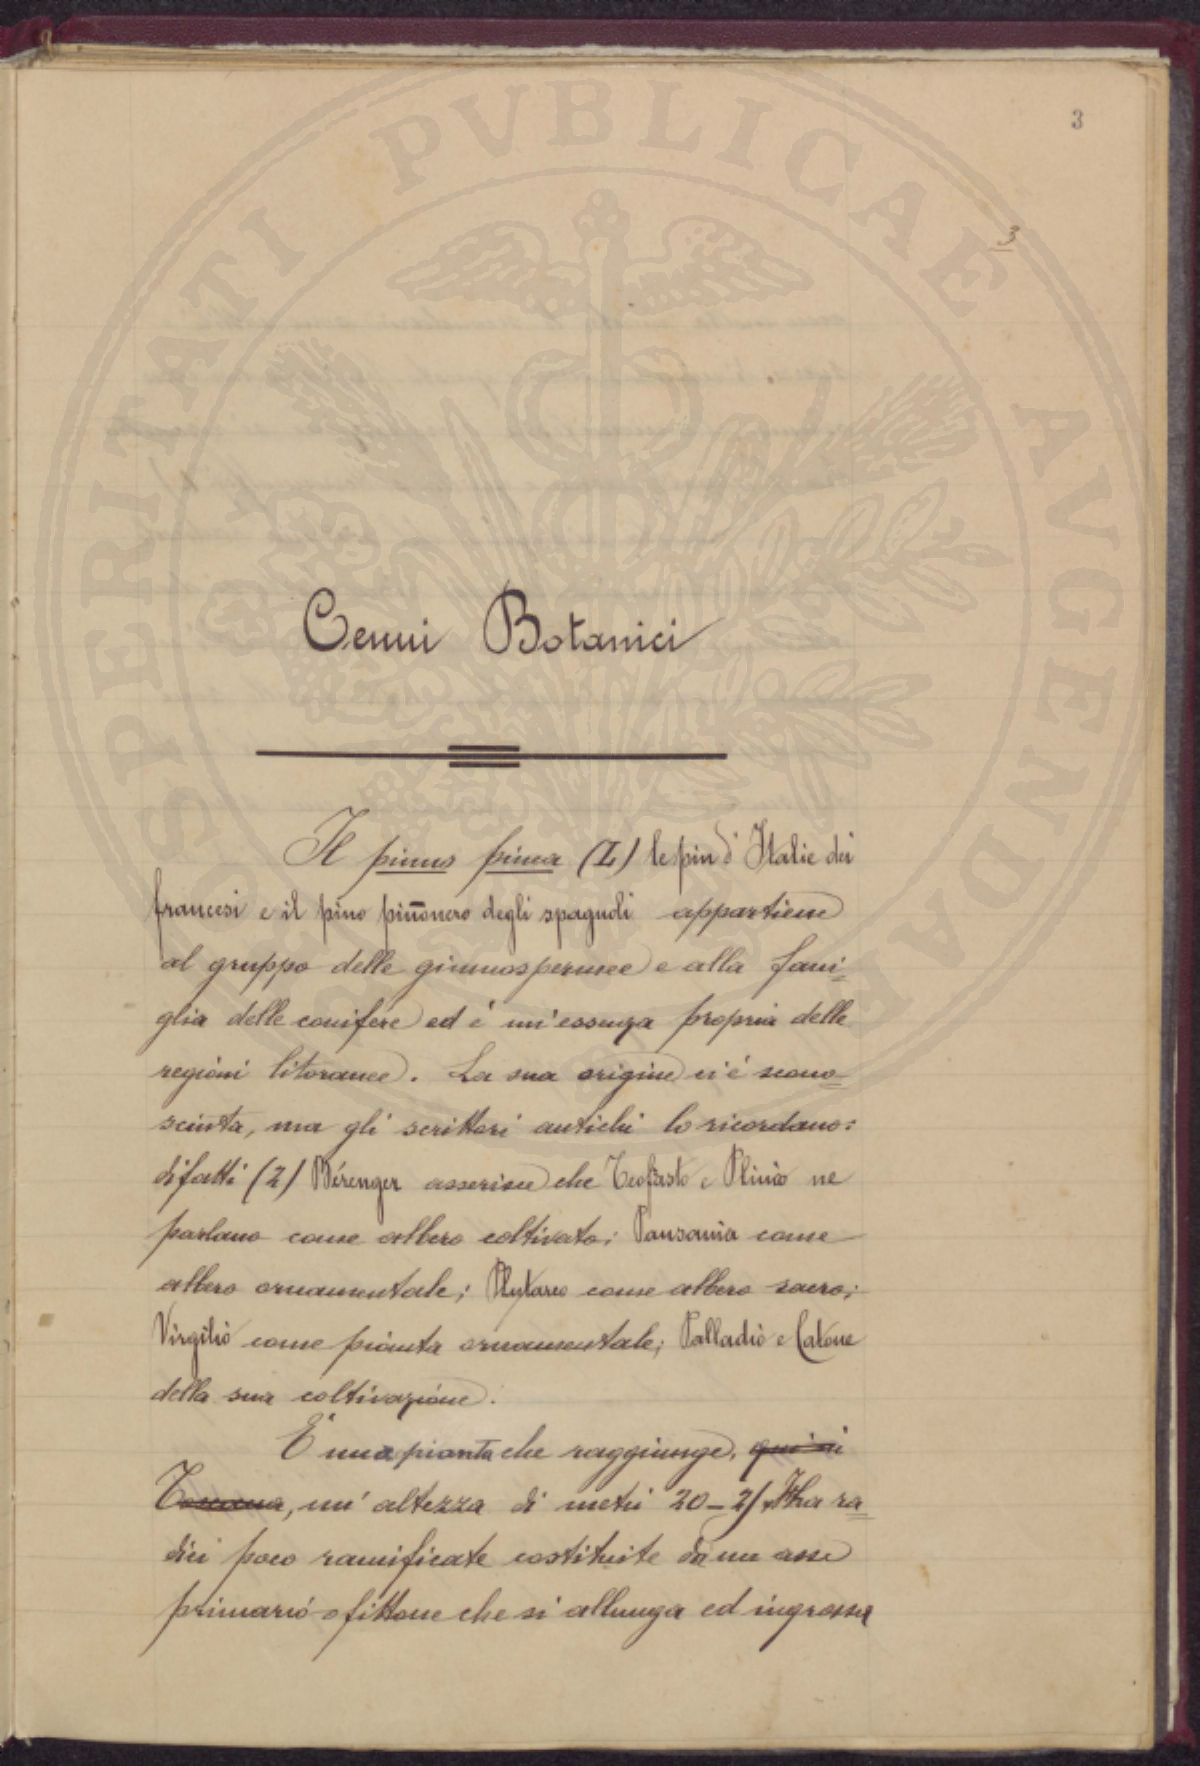 3
3
Cenni Botanici
Il pinus pinea (L) le pin d'Italie dei
francesi e il pino piñonero degli spagnoli appartiene
al gruppo delle gimnospermee e alla fami=
glia delle conifere ed é un'essenza propria delle
regioni litoranee. La sua origine ci é scono=
sciuta, ma gli scrittori antichi lo ricordano:
difatti (2) Bérenger asserisce che Teofrasto e Plinio ne
parlano come albero coltivato; Pausania come
albero ornamentale; Plutarco come albero sacro;
Virgilio come pianta ornamentale; Palladio e Catone
della sua coltivazione.
E' una pianta che raggiunge, qui in
Toscana, un' altezza di metri 20-25. Ha ra=
dici poco ramificate costituite da un asse
primario o fittone che si allunga ed ingrossa
PROSPERITATI PVBLICAE AVGENDAE